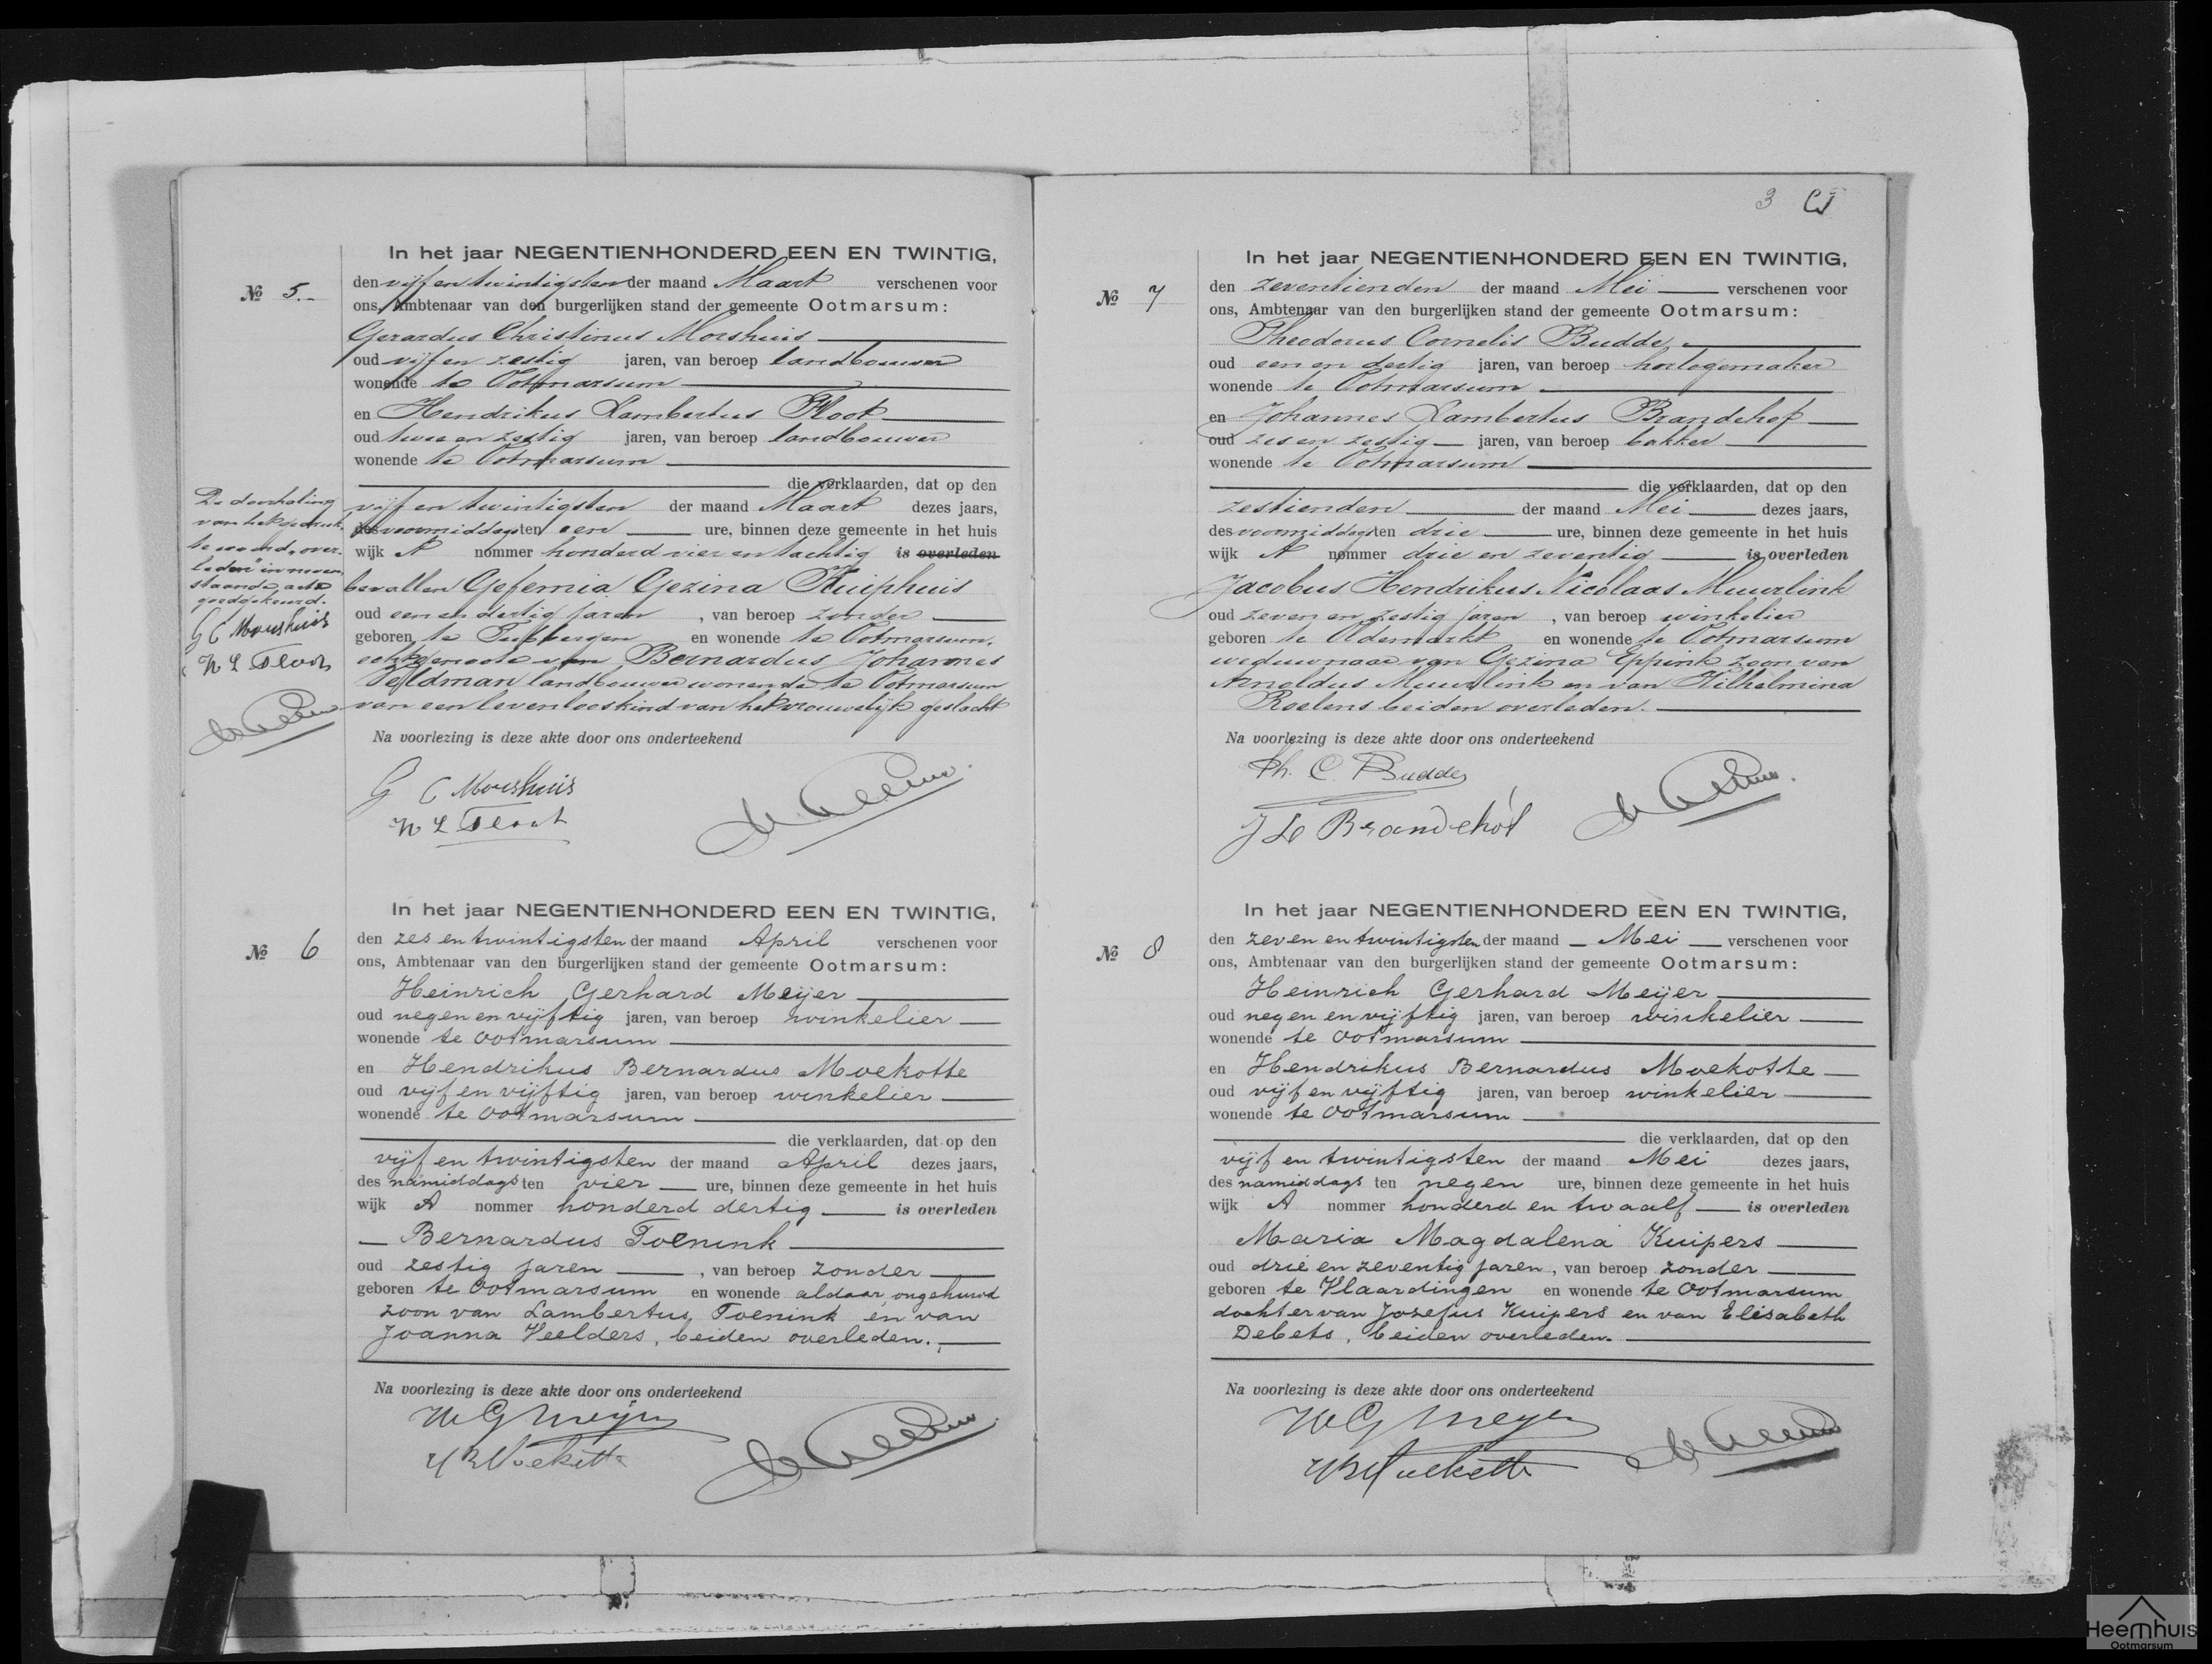 In het jaar NEGENTIENHONDERD EEN EN TWINTIG,
№ 5.-
den vijf en twintigsten der maand Maart verschenen voor
ons, Ambtenaar van den burgerlijken stand der gemeente Ootmarsum:
Gerardus Christinus Morshuis
oud vijf en zestig jaren, van beroep landbouwer
wonende te Ootmarsum
en Hendrikus Lambertus Floot
oud twee en zestig jaren, van beroep landbouwer
wonende te Ootmarsum
die verklaarden, dat op den
vijf en twintigsten der maand Maart dezes jaars,
des voormiddags ten een ure, binnen deze gemeente in het huis
wijk A nommer honderd vier en tachtig is overleden
bevallen Gefernia Gezina Kuiphuis
oud een en dertig jaren, van beroep zonder
geboren te Tubbergen en wonende te Ootmarsum,
echtgenoote van Bernardus Johannes
Veldman landbouwer wonende te Ootmarsum
van een levenloos kind van het vrouwelijk geslacht
Na voorlezing is deze akte door ons onderteekend
G C Morshuis
H L Floot
De doorhaling
van het gedruk-
te woord "over-
leden" in neven-
staande acte
goedgekeurd.
G C Morshuis
H L Floot
In het jaar NEGENTIENHONDERD EEN EN TWINTIG,
№ 6
den zes en twintigsten der maand April verschenen voor
ons, Ambtenaar van den burgerlijken stand der gemeente Ootmarsum:
Heinrich Gerhard Meijer
oud negen en vijftig jaren, van beroep winkelier
wonende te Ootmarsum
en Hendrikus Bernardus Moekotte
oud vijf en vijftig jaren, van beroep winkelier
wonende te Ootmarsum
die verklaarden, dat op den
vijf en twintigsten der maand April dezes jaars,
des namiddags ten vier ure, binnen deze gemeente in het huis
wijk A nommer honderd dertig is overleden
Bernardus Toenink
oud zestig jaren, van beroep zonder
geboren te Ootmarsum en wonende aldaar, ongehuwd
zoon van Lambertus Toenink en van
Joanna Veelders, beiden overleden.
Na voorlezing is deze akte door ons onderteekend
H G Meijer
H B Moekotte
3
In het jaar NEGENTIENHONDERD EEN EN TWINTIG,
№ 7
den zeventienden der maand Mei verschenen voor
ons, Ambtenaar van den burgerlijken stand der gemeente Ootmarsum:
Theodorus Cornelis Budde,
oud een en dertig jaren, van beroep horlogemaker
wonende te Ootmarsum
en Johannes Lambertus Brandehof
oud zes en zestig jaren, van beroep bakker
wonende te Ootmarsum
die verklaarden, dat op den
zestienden der maand Mei dezes jaars,
des voormiddags ten drie ure, binnen deze gemeente in het huis
wijk A nommer drie en zeventig is overleden
Jacobus Hendrikus Nicolaas Muurlink
oud zeven en zestig jaren, van beroep winkelier
geboren te Oldemarkt en wonende te Ootmarsum
weduwnaar van Gezina Eppink zoon van
Arnoldus Muurlink en van Wilhelmina
Roelens beiden overleden.
Na voorlezing is deze akte door ons onderteekend
Th. C. Budde
J L Brandehof
In het jaar NEGENTIENHONDERD EEN EN TWINTIG,
№ 8
den zeven en twintigsten der maand Mei verschenen voor
ons, Ambtenaar van den burgerlijken stand der gemeente Ootmarsum:
Heinrich Gerhard Meijer
oud negen en vijftig jaren, van beroep winkelier
wonende te Ootmarsum
en Hendrikus Bernardus Moekotte
oud vijf en vijftig jaren, van beroep winkelier
wonende te Ootmarsum
die verklaarden, dat op den
vijf en twintigsten der maand Mei dezes jaars,
des namiddags ten negen ure, binnen deze gemeente in het huis
wijk A nommer honderd en twaalf is overleden
Maria Magdalena Kuipers
oud drie en zeventig jaren, van beroep zonder
geboren te Vlaardingen en wonende te Ootmarsum
dochter van Josefus Kuipers en van Elisabeth
Debets, beiden overleden.
Na voorlezing is deze akte door ons onderteekend
H G Meyer
H B Moekotte
Heemhuis
Ootmarsum